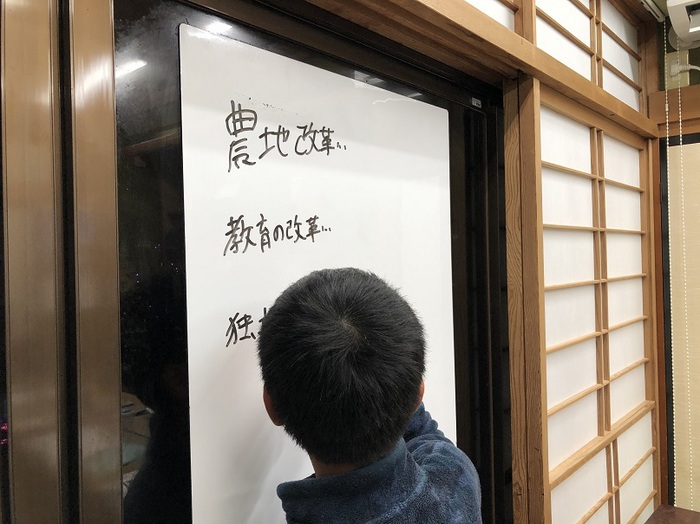 農地改革…
教育の改革…
独